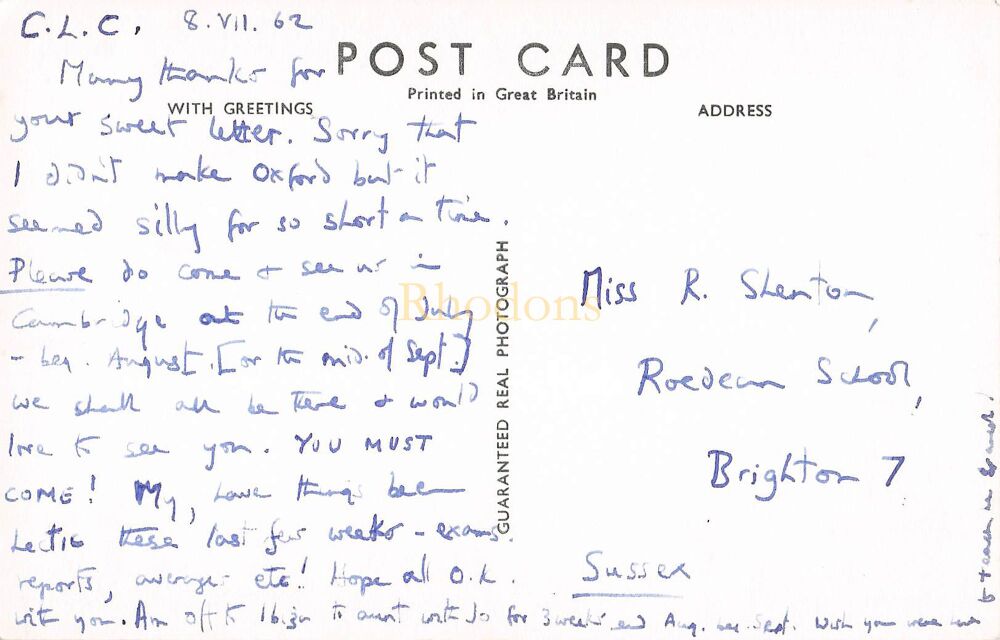 C.L.C. 8.VII.62
POST CARD
Many thanks for
Printed in Great Britain
WITH GREETINGS
ADDRESS
your sweet letter. Sorry that
I didn't make Oxford but it
seemed silly for so short a time.
Please do come & see us in
Cambridge at the end of July
- beg. August. [or the mid. of Sept.]
we shall all be there & would
love to see you. YOU MUST
COME! My, have things been
hectic these last few weeks - exams.
reports, averages etc! Hope all O.K.
with you. Am off to Ibiza to aunt with Jo for 3 weeks end Aug. Sept. Wish you were
GUARANTEED REAL PHOTOGRAPH
Miss R. Shenton,
Roedean School,
Brighton 7
Sussex
Rhodons